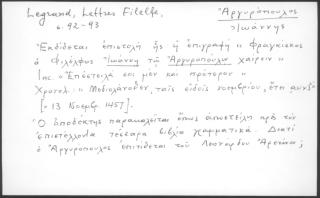 Legrand, Lettres Filelfe,
σ. 92-93
Ἀργυρόπουλος
Ἰωάννης
Ἐκδίδεται ἐπιστολὴ ἧς ἡ ἐπιγραφὴ « Φραγκίσκος
ὁ Φιλέλφος Ἰωάννῃ τῷ Ἀργυροπούλῳ χαίρειν »
Inc. « Ἐπέστειλά σοι μὲν καὶ πρότερον »
Χρονολ. « Μεδιολάνοθεν, ταῖς εἰδοῖς νοεμβρίου, ἔτει αυνζʹ »
[= 13 Νοεμβρ. 1457].
Ὁ ἀποδέκτης παρακαλεῖται ὅπως ἀποστείλῃ πρὸς τὸν
ἐπιστέλλοντα τέσσαρα βιβλία γραμματικά. Διατί
ὁ Ἀργυρόπουλος ἐπιτίθεται τοῦ Λεονάρδου Ἀρετίνου;